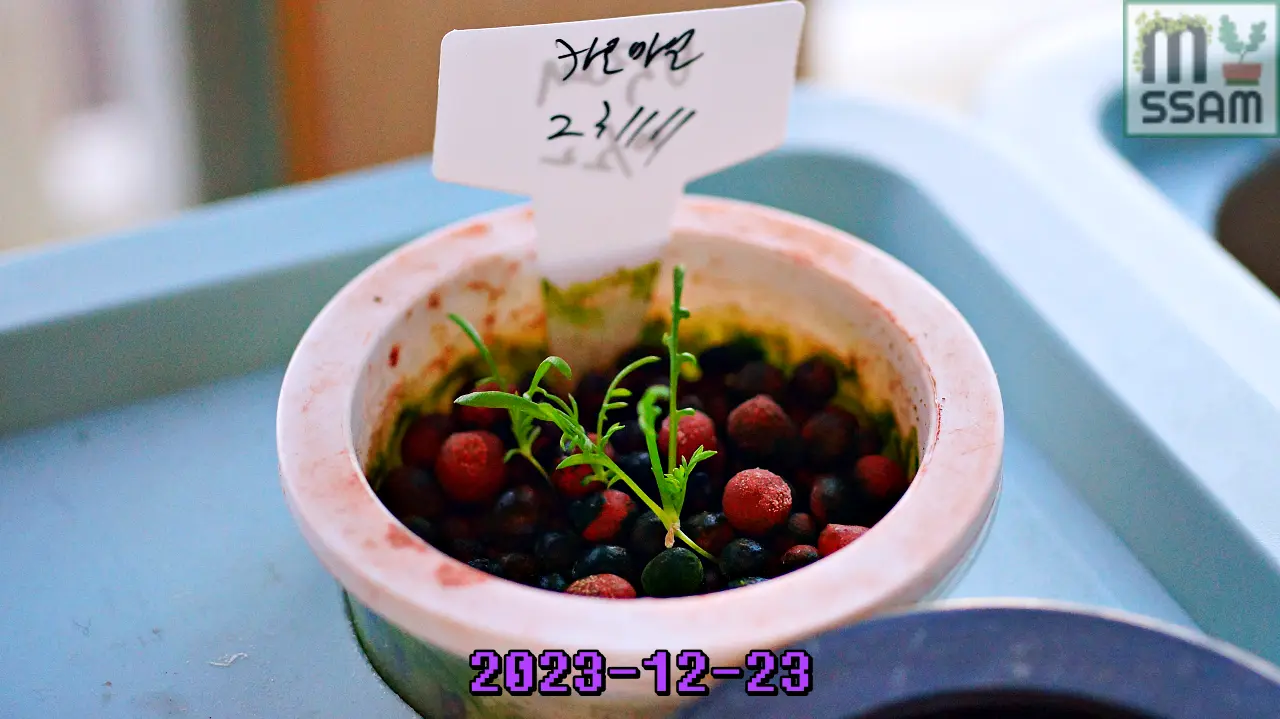 카모마일
231111
M
SSAM
2023-12-23